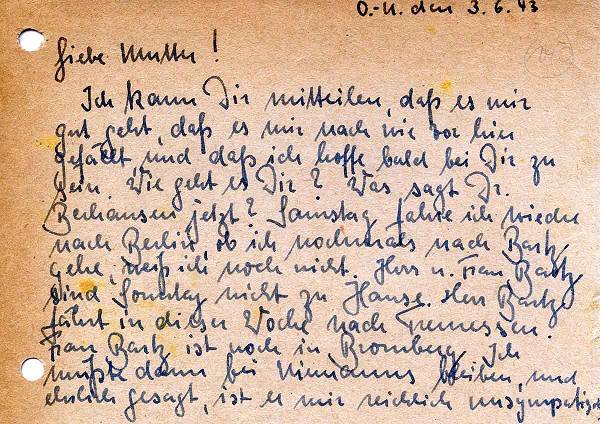 O.-U. den 3.6.43
Liebe Mutter!
Ich kann Dir mitteilen, daß es mir
gut geht, daß es mir nach wie vor hier
gefällt, und daß ich hoffe bald bei Dir zu
sein. Wie geht es Dir? Was sagt Dr.
jetzt? Samstag fahre ich wieder
nach Berlin, ob ich nochmals nach Bartz
gehe, weiß ich noch nicht. Herr u. Frau Bartz
sind Sonntag nicht zu Hause. Herr Bartz
fährt in dieser Woche nach Tremessen.
Frau Bartz ist noch in Bromberg. Ich
müßte dann bei Niemanns bleiben, und
ehrlich gesagt, ist es mir reichlich unsympatisch